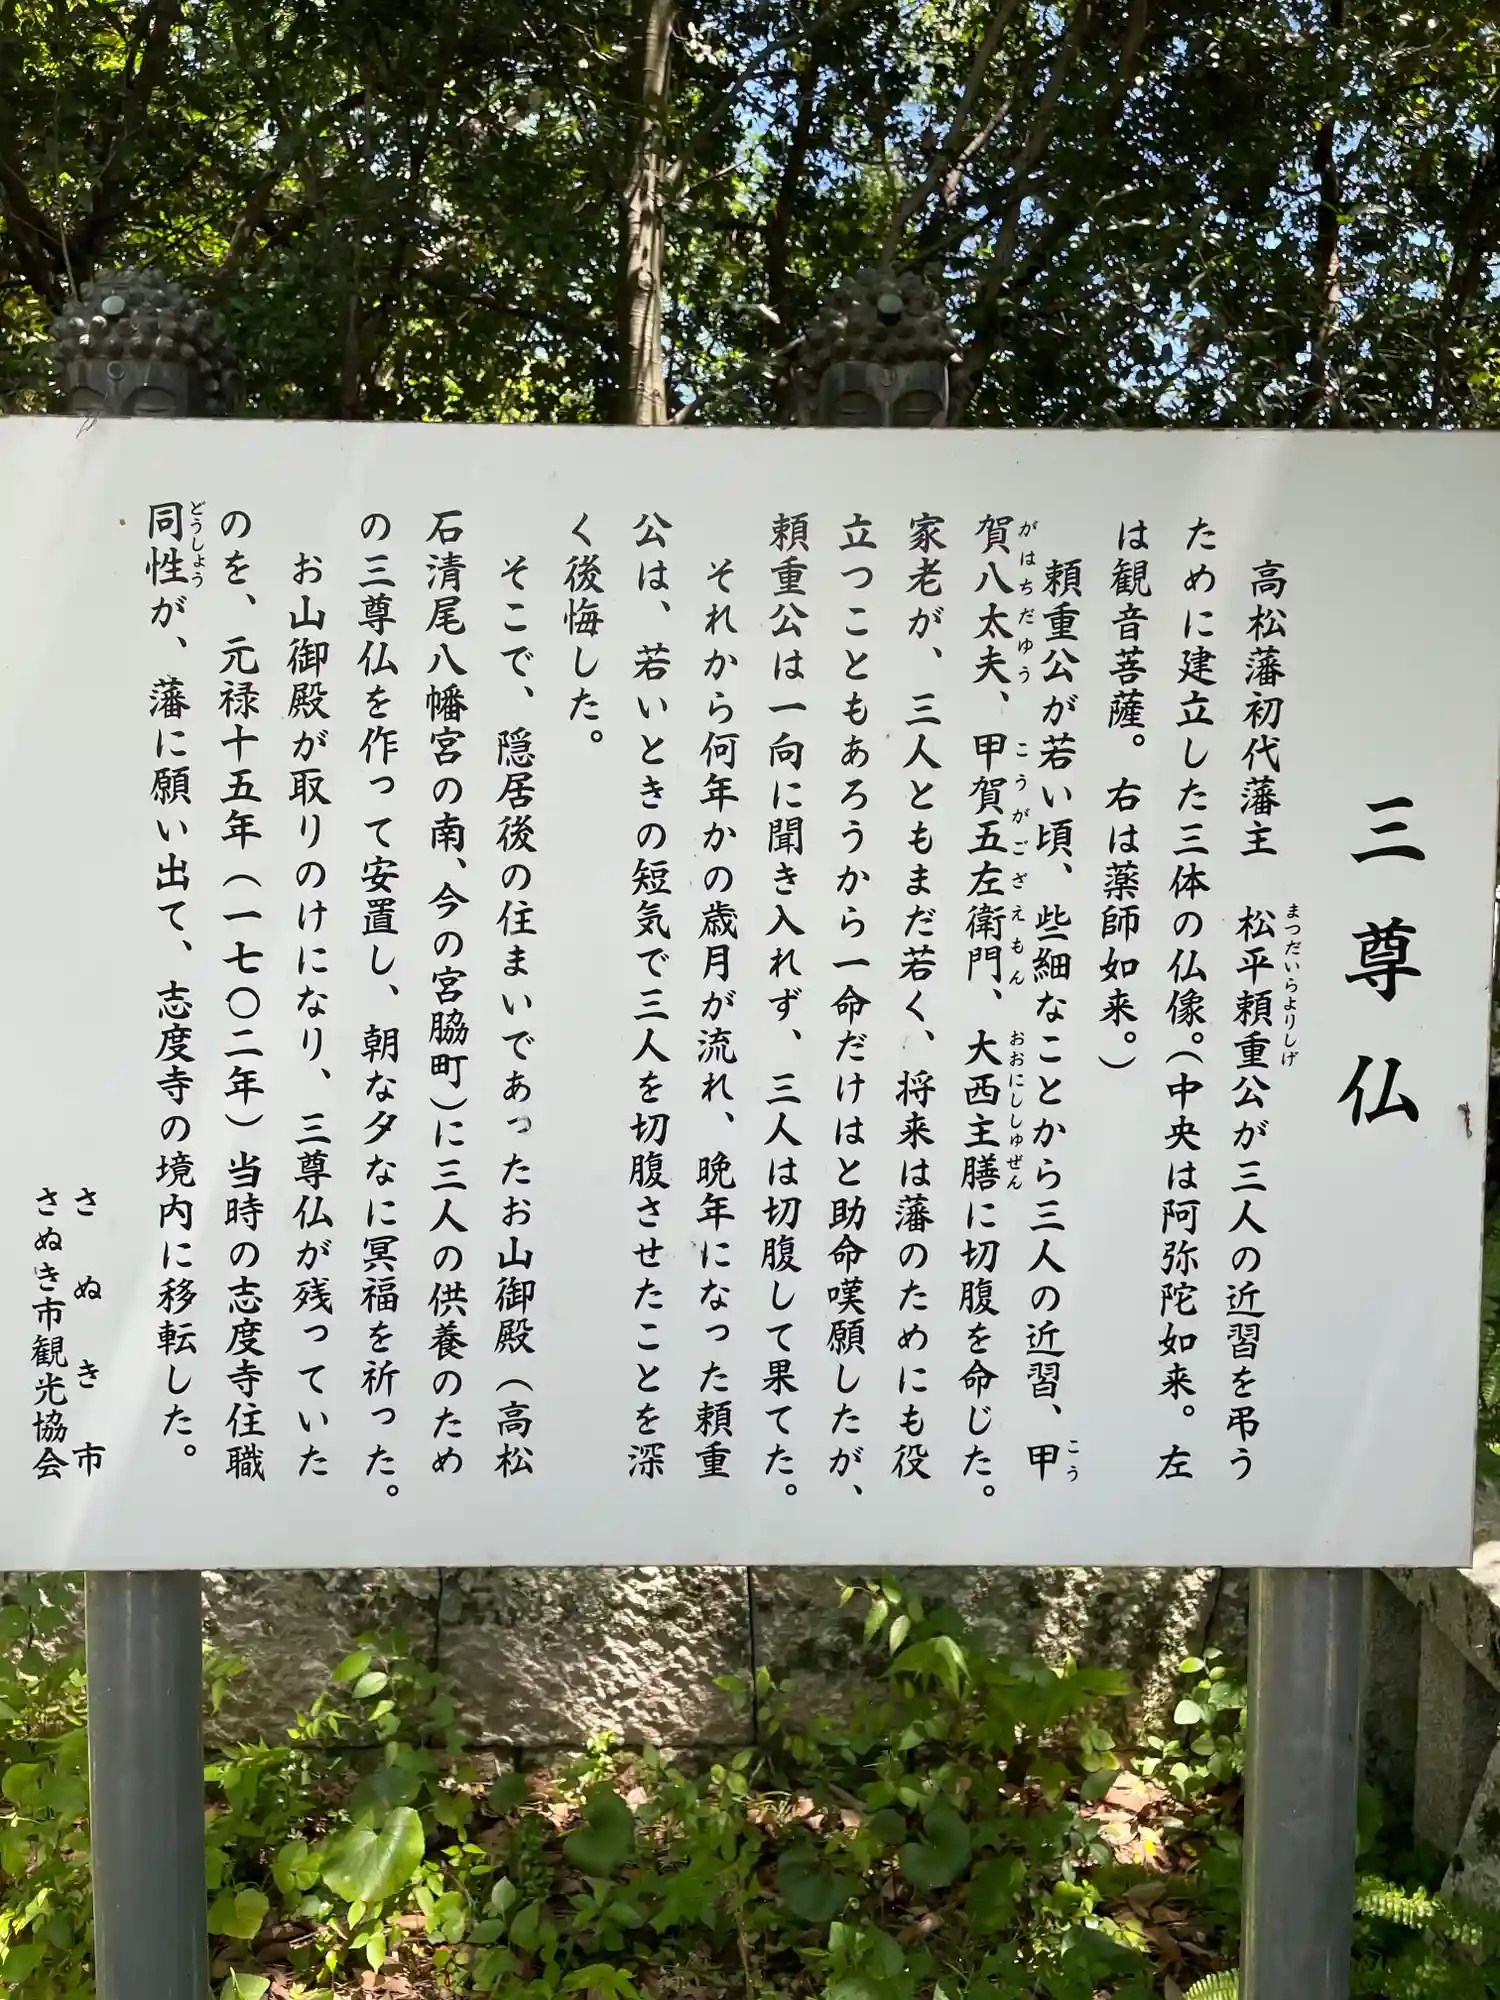 三尊仏
高松藩初代藩主 松平頼重公が三人の近習を弔う
まつだいらよりしげ
ために建立した三体の仏像。(中央は阿弥陀如来。左
は観音菩薩。右は薬師如来。)
頼重公が若い頃、些細なことから三人の近習、甲
こう
賀八太夫、甲賀五左衛門、大西主膳に切腹を命じた。
がはちだゆう こうがござえもん おおにししゅぜん
家老が、三人ともまだ若く、将来は藩のためにも役
立つこともあろうから一命だけはと助命嘆願したが、
頼重公は一向に聞き入れず、三人は切腹して果てた。
それから何年かの歳月が流れ、晩年になった頼重
公は、若いときの短気で三人を切腹させたことを深
く後悔した。
そこで、隠居後の住まいであったお山御殿(高松
石清尾八幡宮の南、今の宮脇町)に三人の供養のため
の三尊仏を作って安置し、朝な夕なに冥福を祈った。
お山御殿が取りのけになり、三尊仏が残っていた
のを、元禄十五年(一七〇二年)当時の志度寺住職
同性が、藩に願い出て、志度寺の境内に移転した。
どうしょう
さぬき市
さぬき市観光協会